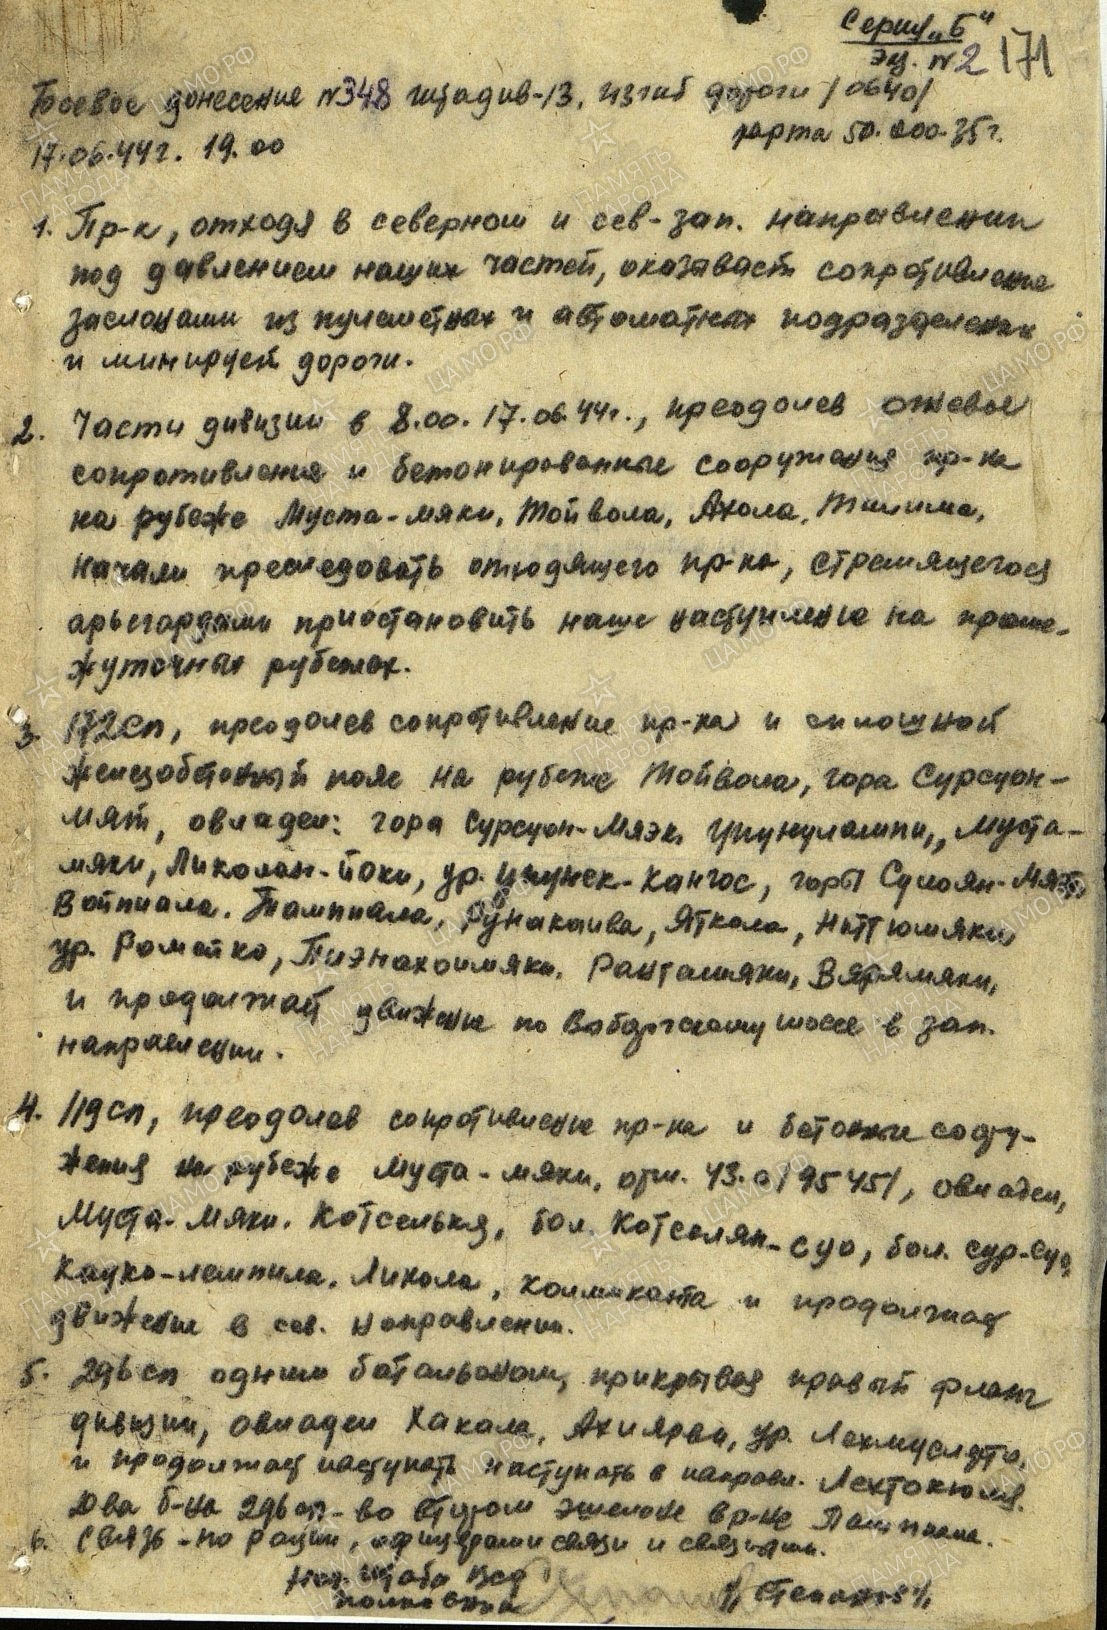 Серия „Б"
Экз. №2 171
Боевое донесение №348 штадив-13, изгиб дороги /0640/
17.06.44г. 19.00 карта 50.000.35г.
1. Пр-к, отходя в северном и сев-зап. направлении
под давлением наших частей, оказывает сопротивление
заслонами из пулеметных и автоматных подразделений
и минируя дороги.
2. Части дивизии в 8.00. 17.06.44г., преодолев огневое
сопротивления и бетонированные сооружения пр-ка
на рубеже Муста-мяки, Тойвола, Ахола,
начали преследовать отходящего пр-ка, стремящегося
арьегардами приостановить наше наступление на проме-
жуточных рубежах.
3. 172сп, преодолев сопротивление пр-ка и сплошной
железобетонный пояс на рубеже Тойвола, гора Сурсуон-
мят, овладел: гора Сурсуон-Мяэк, Муста-
мяки, Ликолан-йоки, ур. горы
Войпиала, Тампиала, Яткола, Няттюмяки,
ур. Ромотко, Рантамяки, Вярямяки,
и продолжает движение по Выборгскому шоссе в зап.
направлении.
4. 119сп, преодолев сопротивление пр-ка и бетонные соору-
жения на рубеже Муста-мяки, отм. 43.0 /9545/, овладел,
Муста-Мяки, Котселькя, бол. Котселян-суо, бол. сур-суо,
Кауко-лемпила, Ликола, и продолжая
движение в сев. направлении.
5. 296сп одним батальоном, прикрывая правый фланг
дивизии, овладел Хакала, Ахиярви, ур.
и продолжает наступать наступать в направл.
Два б-на 296сп-во втором эшелоне в р-не
6. Связь-по рации, офицерами связи и связными.
Нач. штаба 13сд
полковник /Степанов/